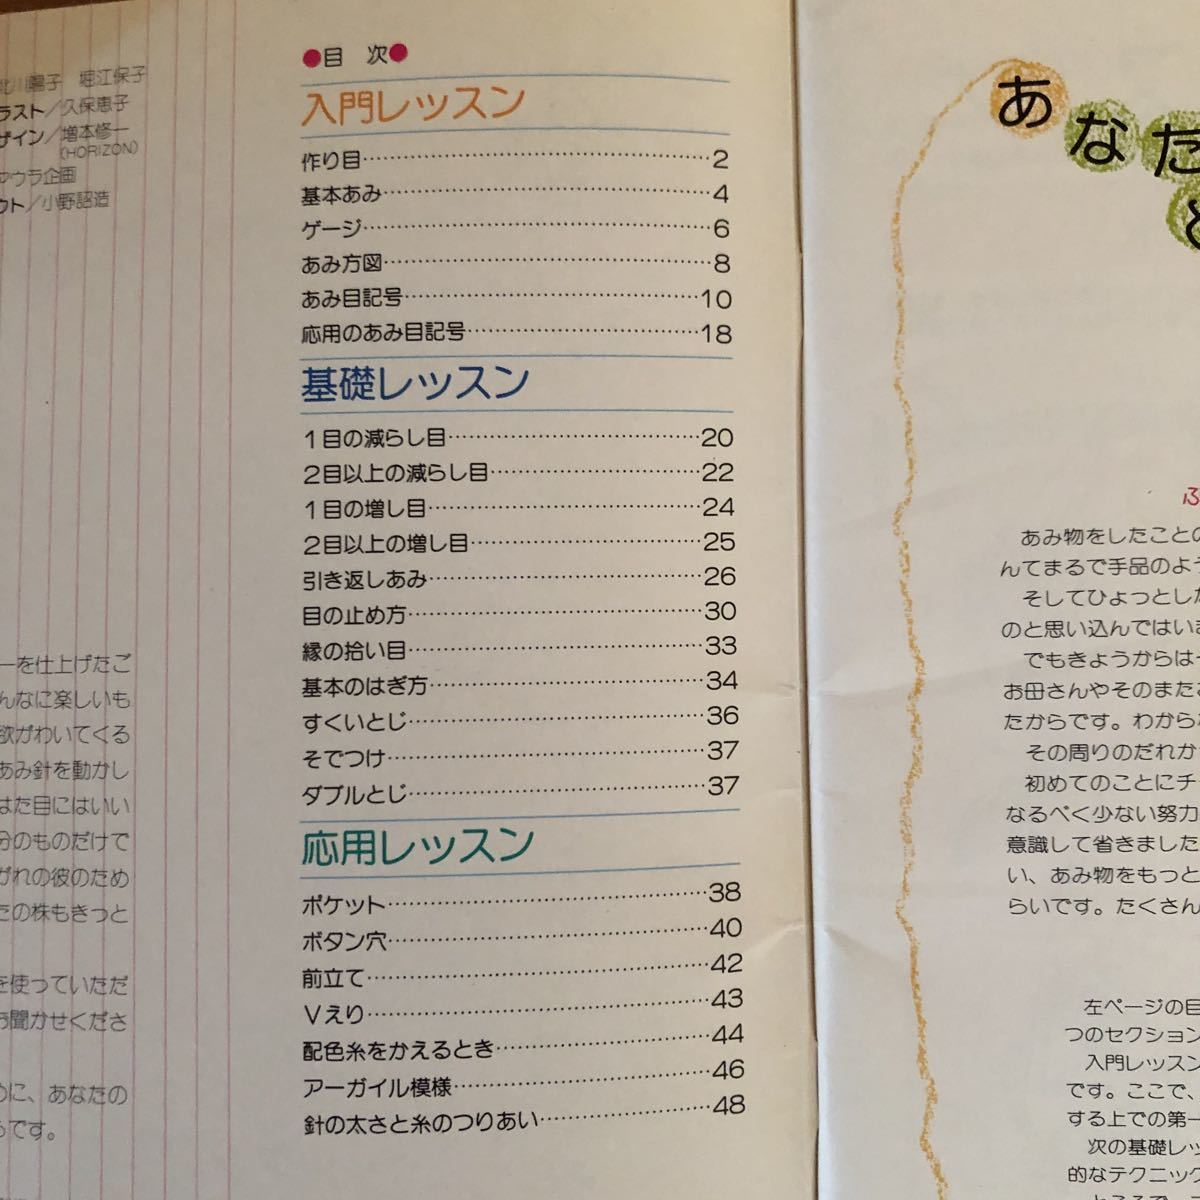 北川陽子 堀江保子
ラスト／久保恵子
ザイン／増本修一
(HORIZON)
ウラ企画
ウト／小野詔造
ーを仕上げたご
んなに楽しいも
欲がわいてくる
あみ針を動かし
はた目にはいい
分のものだけで
がれの彼のため
たの株もきっと
を使っていただ
お聞かせくださ
めに、あなたの
です。
●目 次●
入門レッスン
作り目……2
基本あみ……4
ゲージ……6
あみ方図……8
あみ目記号……10
応用のあみ目記号……18
基礎レッスン
1目の減らし目……20
2目以上の減らし目……22
1目の増し目……24
2目以上の増し目……25
引き返しあみ……26
目の止め方……30
縁の拾い目……33
基本のはぎ方……34
すくいとじ……36
そでつけ……37
ダブルとじ……37
応用レッスン
ポケット……38
ボタン穴……40
前立て……42
Vえり……43
配色糸をかえるとき……44
アーガイル模様……46
針の太さと糸のつりあい……48
あなた
と
ふ
あみ物をしたことの
んてまるで手品のよう
そしてひょっとした
のと思い込んではいま
でもきょうからは
お母さんやそのまたお
たからです。わからな
その周りのだれか
初めてのことにチ
なるべく少ない努力
意識して省きました
い、あみ物をもっと
らいです。たくさん
左ページの目
つのセクション
入門レッスン
です。ここで、
する上での第一
次の基礎レッ
的なテクニック